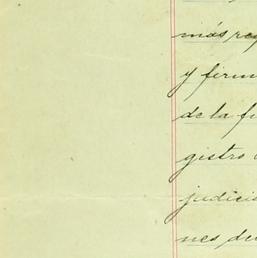 más re
y firm
de la fu
gistro
judicia
nes de